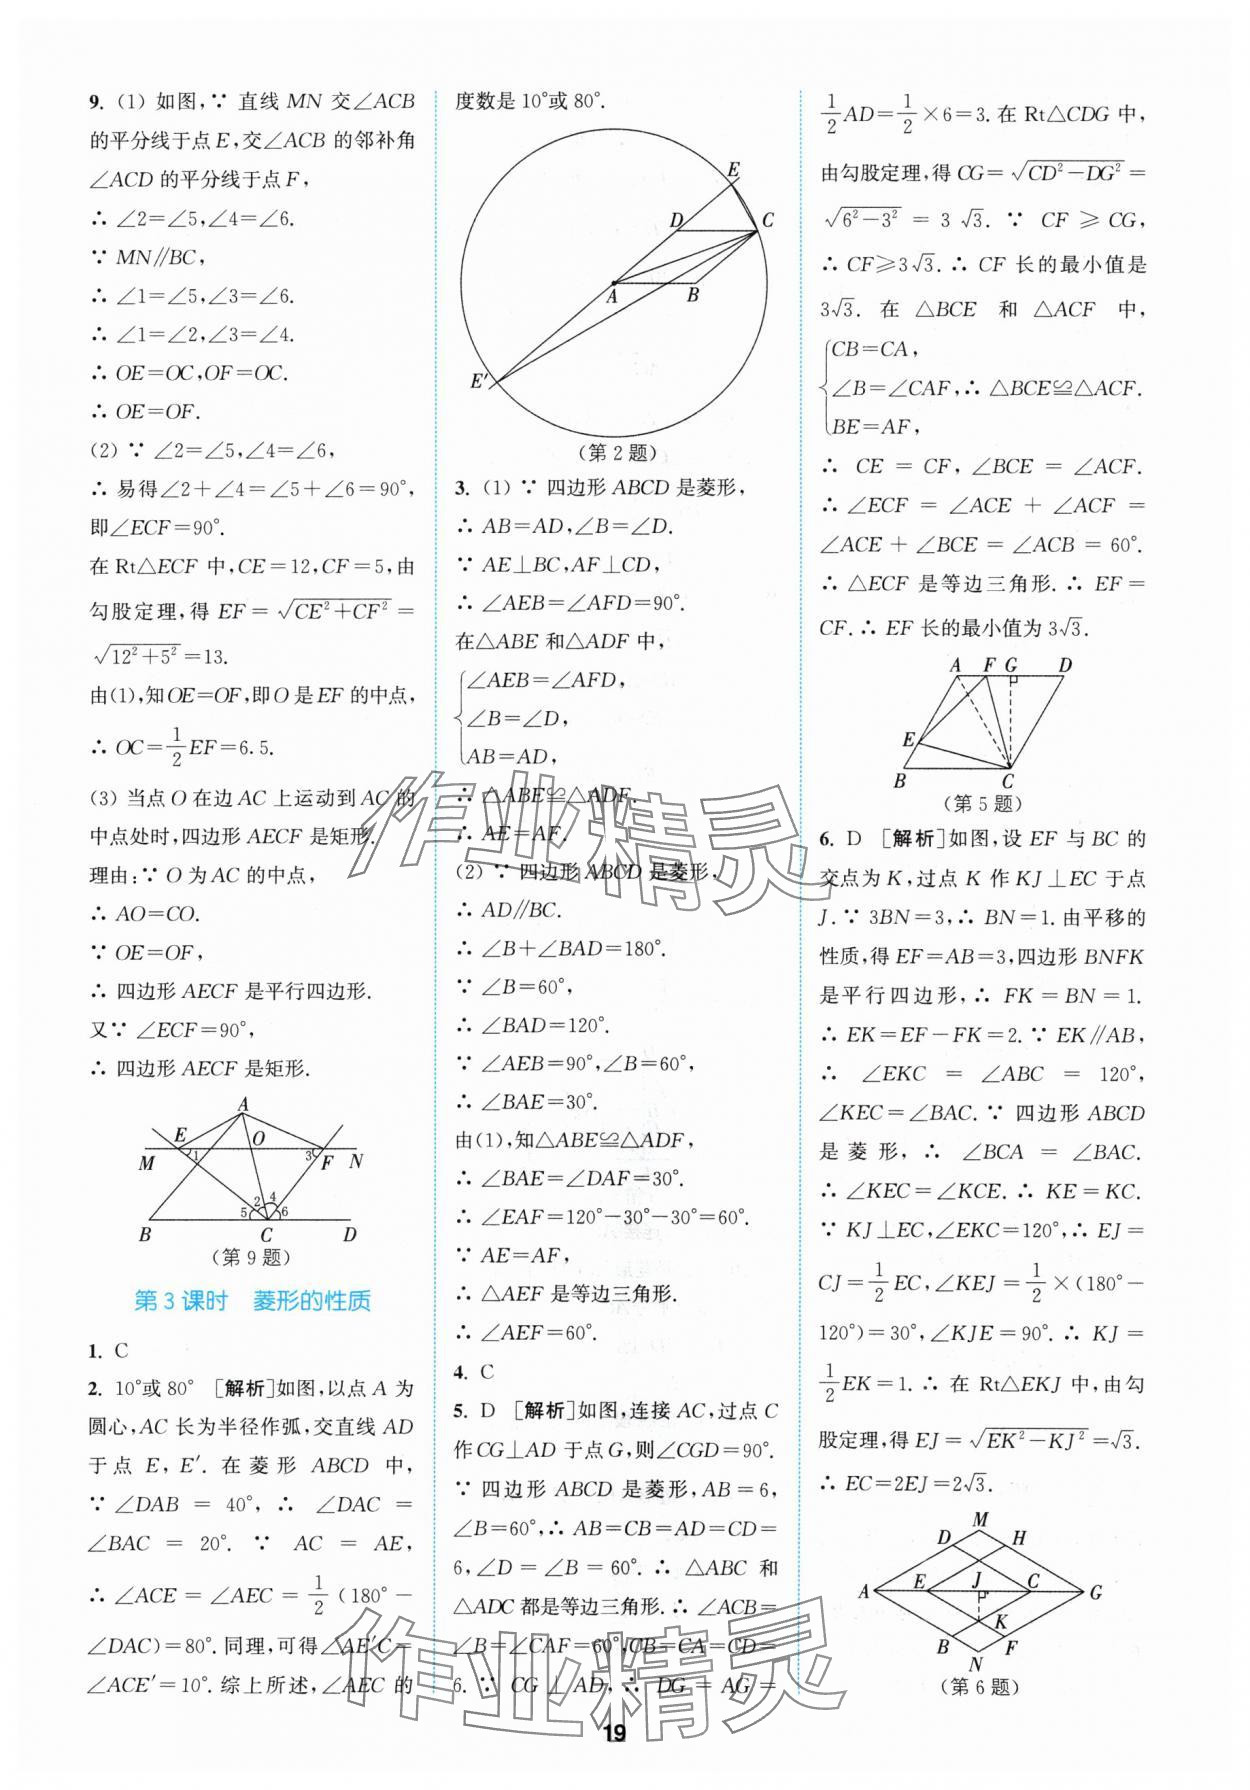 9. (1) 如图,∵ 直线 MN 交∠ACB
的平分线于点 E,交∠ACB 的邻补角
∠ACD 的平分线于点 F,
∴ ∠2=∠5,∠4=∠6.
∵ MN∥BC,
∴ ∠1=∠5,∠3=∠6.
∴ ∠1=∠2,∠3=∠4.
∴ OE=OC,OF=OC.
∴ OE=OF.
(2) ∵ ∠2=∠5,∠4=∠6,
∴ 易得∠2+∠4=∠5+∠6=90°,
即∠ECF=90°.
在 Rt△ECF 中,CE=12,CF=5,由
勾股定理,得 EF=√(CE²+CF²)=
√(12²+5²)=13.
由(1),知 OE=OF,即 O 是 EF 的中点,
∴ OC=1/2 EF=6.5.
(3) 当点 O 在边 AC 上运动到 AC 的
中点处时,四边形 AECF 是矩形.
理由:∵ O 为 AC 的中点,
∴ AO=CO.
∵ OE=OF,
∴ 四边形 AECF 是平行四边形.
又∵ ∠ECF=90°,
∴ 四边形 AECF 是矩形.
A
E O
M 1 3 F N
2 4
5 6
B C D
(第 9 题)
第 3 课时 菱形的性质
1. C
2. 10°或 80° [解析]如图,以点 A 为
圆心,AC 长为半径作弧,交直线 AD
于点 E, E′. 在菱形 ABCD 中,
∵ ∠DAB = 40°, ∴ ∠DAC =
∠BAC = 20°. ∵ AC = AE,
∴ ∠ACE = ∠AEC = 1/2 (180° −
∠DAC)=80°.同理,可得∠AE′C=
∠ACE′=10°. 综上所述,∠AEC 的
度数是 10°或 80°.
E
D C
A B
E′
(第 2 题)
3. (1) ∵ 四边形 ABCD 是菱形,
∴ AB=AD,∠B=∠D.
∵ AE⊥BC,AF⊥CD,
∴ ∠AEB=∠AFD=90°.
在△ABE 和△ADF 中,
∠AEB=∠AFD,
∠B=∠D,
AB=AD,
∴ △ABE≌△ADF.
∴ AE=AF.
(2) ∵ 四边形 ABCD 是菱形,
∴ AD∥BC.
∴ ∠B+∠BAD=180°.
∵ ∠B=60°,
∴ ∠BAD=120°.
∵ ∠AEB=90°,∠B=60°,
∴ ∠BAE=30°.
由(1),知△ABE≌△ADF,
∴ ∠BAE=∠DAF=30°.
∴ ∠EAF=120°−30°−30°=60°.
∵ AE=AF,
∴ △AEF 是等边三角形.
∴ ∠AEF=60°.
4. C
5. D [解析]如图,连接 AC,过点 C
作 CG⊥AD 于点 G,则∠CGD=90°.
∵ 四边形 ABCD 是菱形,AB=6,
∠B=60°,∴ AB=CB=AD=CD=
6,∠D=∠B=60°. ∴ △ABC 和
△ADC 都是等边三角形.∴ ∠ACB=
∠B=∠CAF=60°,CB=CA=CD=
6. ∵ CG ⊥ AD, ∴ DG = AG =
1/2 AD=1/2×6=3.在 Rt△CDG 中,
由勾股定理,得 CG=√(CD²−DG²)=
√(6²−3²) = 3√3. ∵ CF ≥ CG,
∴ CF≥3√3.∴ CF 长的最小值是
3√3. 在 △BCE 和 △ACF 中,
CB=CA,
∠B=∠CAF,∴ △BCE≌△ACF.
BE=AF,
∴ CE = CF, ∠BCE = ∠ACF.
∴ ∠ECF = ∠ACE + ∠ACF =
∠ACE + ∠BCE = ∠ACB = 60°.
∴ △ECF 是等边三角形.∴ EF=
CF.∴ EF 长的最小值为 3√3.
A F G D
E
B C
(第 5 题)
6. D [解析]如图,设 EF 与 BC 的
交点为 K,过点 K 作 KJ⊥EC 于点
J.∵ 3BN=3,∴ BN=1.由平移的
性质,得 EF=AB=3,四边形 BNFK
是平行四边形,∴ FK=BN=1.
∴ EK=EF−FK=2.∵ EK∥AB,
∴ ∠EKC = ∠ABC = 120°,
∠KEC=∠BAC.∵ 四边形 ABCD
是菱形,∴ ∠BCA = ∠BAC.
∴ ∠KEC=∠KCE.∴ KE=KC.
∵ KJ⊥EC,∠EKC=120°,∴ EJ=
CJ=1/2 EC,∠KEJ=1/2×(180°−
120°)=30°,∠KJE=90°.∴ KJ=
1/2 EK=1.∴ 在 Rt△EKJ 中,由勾
股定理,得 EJ=√(EK²−KJ²)=√3.
∴ EC=2EJ=2√3.
M
D H
A E J C G
K
B F
N
(第 6 题)
作业精灵
作业精灵
19